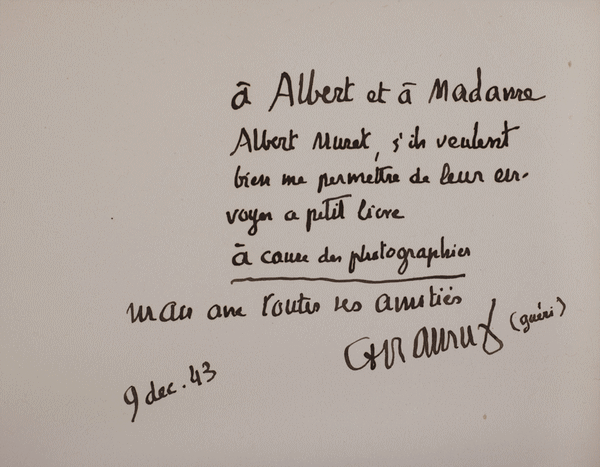 à Albert et à Madame
Albert Muret, s'ils veulent
bien me permettre de leur en-
voyer ce petit livre
à cause des photographies
mais avec toutes ses amitiés
CF Ramuz (guéri)
9 dec. 43